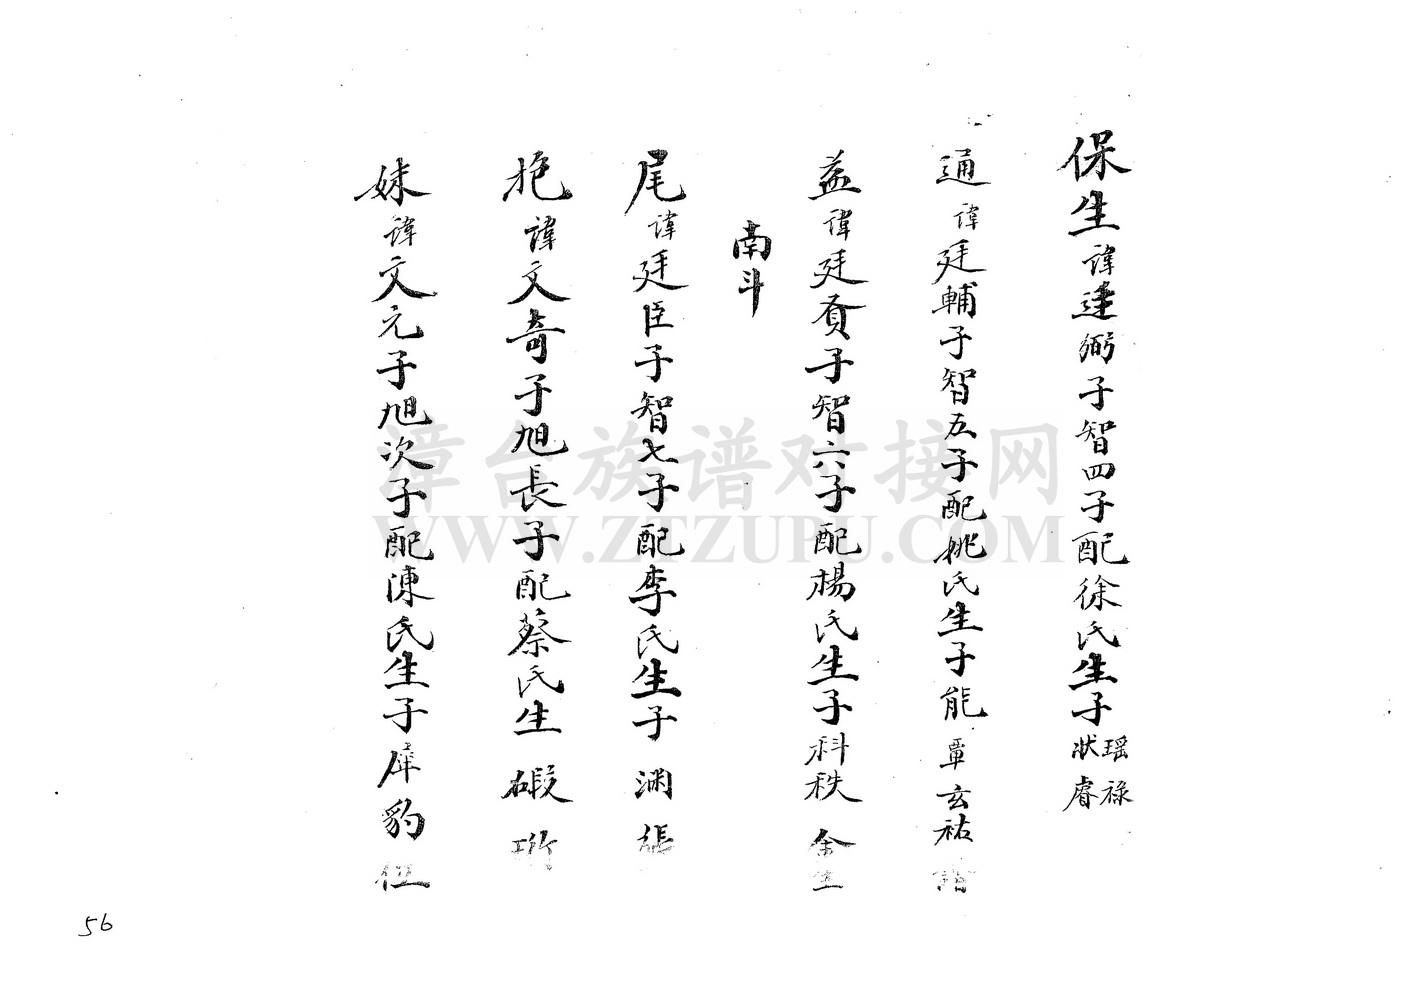 保生諱廷弼子智四子配徐氏生子瑶禄狀睿
通諱廷輔子智五子配姚氏生子能覃玄祐
益諱廷賁子智六子配楊氏生子科秩金生
南斗
尾諱廷臣子智七子配李氏生子渊張
抱諱文奇子旭長子配蔡氏生碬珩
妹諱文元子旭次子配陳氏生子犀豹
漳台族谱对接网
WWW.ZTZUPU.COM
56